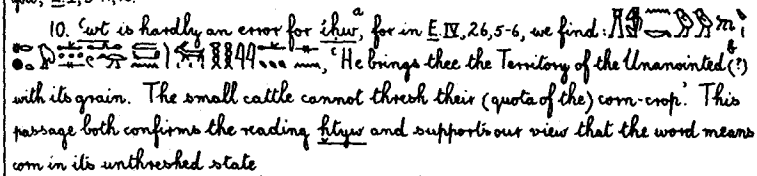 10. ꜥwt is hardly an error for iḥw,ᵃ for in E.IV,26,5-6, we find:
'He brings thee the Territory of the Unanointed ᵇ(?)
with its grain. The small cattle cannot thresh their (quota of the) corn-crop'. This
passage both confirms the reading ḥtyw and supports our view that the word means
corn in its unthreshed state